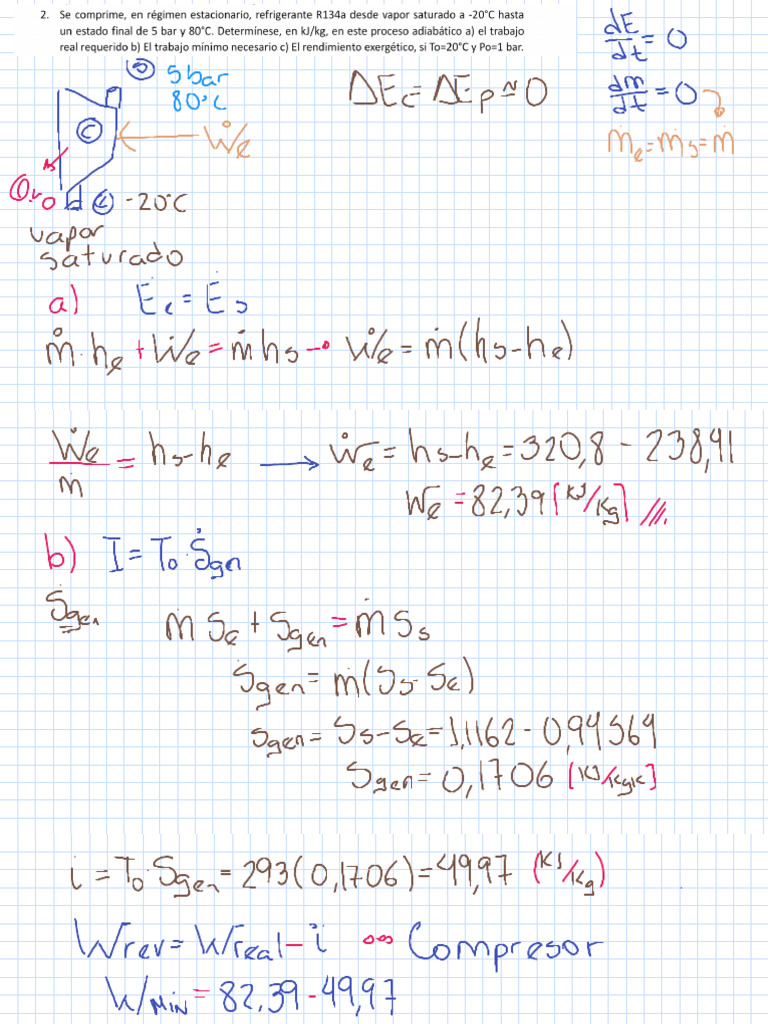 2. Se comprime, en régimen estacionario, refrigerante R134a desde vapor saturado a -20°C hasta
un estado final de 5 bar y 80°C. Determínese, en kJ/kg, en este proceso adiabático a) el trabajo
real requerido b) El trabajo mínimo necesario c) El rendimiento exergético, si To=20°C y Po=1 bar.
dE/dt = 0
dm/dt = 0
ṁe = ṁs = ṁ
ΔEc = ΔEp ≈ 0
5 bar
80°C
C
Ẇe
Q̇r0
-20°C
vapor
saturado
a) Ėe = Ės
ṁ·he + Ẇe = ṁhs → Ẇe = ṁ(hs-he)
Ẇe/ṁ = hs-he → ẇe = hs-he = 320,8 - 238,41
We = 82,39 [KJ/Kg] ///.
b) İ = To·Ṡgen
Ṡgen ṁ Se + Ṡgen = ṁ Ss
Ṡgen = ṁ(Ss-Se)
sgen = Ss-Se = 1,1162 - 0,94564
Sgen = 0,1706 [KJ/KgK]
i = To·Sgen = 293(0,1706) = 49,97 (KJ/Kg)
Wrev = Wreal - i Compresor
WMIN = 82,39 - 49,97